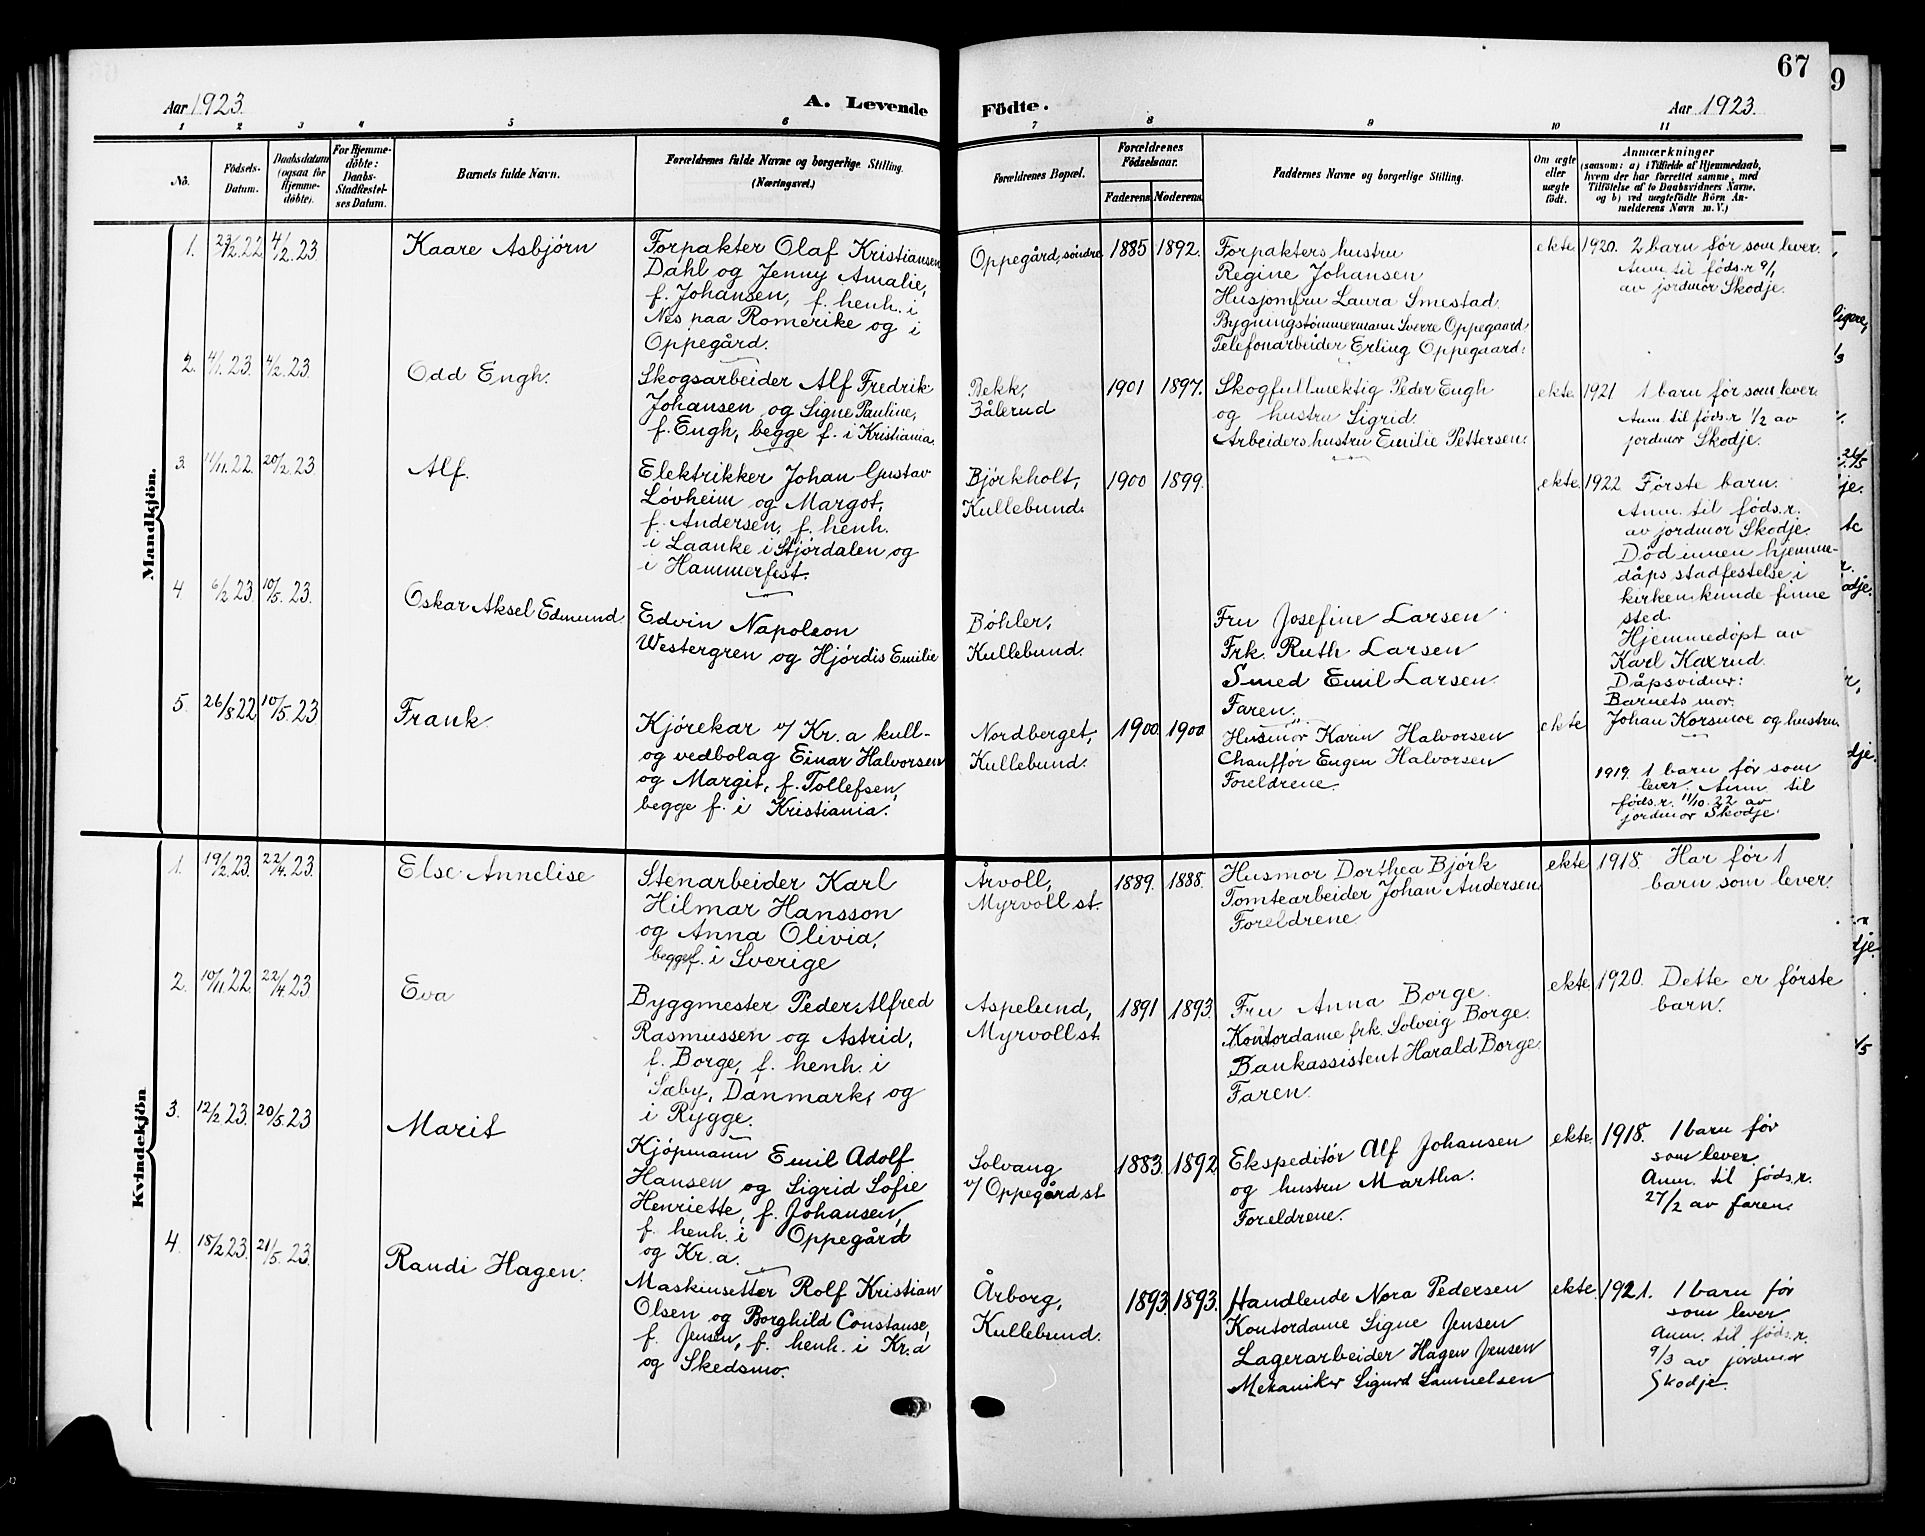 67
Aar 1923.
A. Levende
Födte.
Aar 1923.
1 2 3 4 5 6 7 8 9 10 11
No.
Födsels-
Datum.
Daabsdatum
(ogsaa for
Hjemme-
döbte).
For Hjemme-
döbte:
Daabs-
Stadfæstel-
ses Datum.
Barnets fulde Navn.
Forældrenes fulde Navne og borgerlige Stilling.
(Næringsvei.)
Forældrenes Bopæl.
Forældrenes
Födselsaar.
Faderens
Moderens
Faddernes Navne og borgerlige Stilling.
Om ægte
eller
uægte
födt.
Anmærkninger
(saasom: a) i Tilfælde af Hjemmedaab,
hvem der har forrettet samme, med
Tilföielse af to Daabsvidners Navne,
og b) ved uægtefödte Börn An-
melderens Navn m. V.)
Mandkjön.
1. 29/12.22 4/2.23
Kaare Asbjørn
Forpakter Olaf Kristiansen
Dahl og Jenny Amalie,
f. Johansen, f. henh. i
Nes paa Romerike og i
Oppegård.
Oppegård, søndre
1885 1892.
Forpakters hustru
Regine Johansen
Husjomfru Laura Smestad
Bygningstømmermann Sverre Oppegaard
Telefonarbeider Erling Oppegaard.
ekte
1920. 2 barn før som lever.
Anm. til føds.r 9/1
av jordmor Skodje.
2. 4/1.23. 4/2.23
Odd Engh.
Skogsarbeider Alf Fredrik
Johansen og Signe Pauline,
f. Engh, begge f. i Kristiania.
Bekk,
Bålerud
1901 1897.
Skogfullmektig Peder Engh
og hustru Sigrid.
Arbeiders hustru Emilie Pettersen.
ekte.
1921 1 barn før som lever.
Anm. til føds.r 1/2 av
jordmor Skodje.
3. 11/11.22. 20/2.23
Alf.
Elektrikker Johan Gustav
Løvheim og Margot,
f. Andersen, f. henh.
i Laanke i Stjørdalen og
i Hammerfest.
Bjørkholt,
Kullebund.
1900 1899.
ekte.
1922 Første barn.
Anm. til føds.r.
av jordmor Skodje.
Død innen hjemme-
dåps stadfestelse i
kirken kunde finne
sted.
Hjemmedøpt av
Karl Kaxrud.
Dåpsvidner:
Barnets mor.
Johan Korsmoe og hustru
4 6/2.23 10/5.23.
Oskar Aksel Edmund
Edvin Napoleon
Westergren og Hjørdis Emilie
Bøhler,
Kullebund.
Fru Josefine Larsen
Frk. Ruth Larsen
Smed Emil Larsen.
Faren.
5. 26/8 22 10/5.23
Frank.
Kjørekar v/ Kr.a kull-
og vedbolag Einar Halvorsen
og Margit, f. Tollefsen,
begge f. i Kristiania.
Nordberget,
Kullebund.
1900. 1900
Husmor Karin Halvorsen
Chauffør Eugen Halvorsen
Foreldrene
ekte
1919. 1 barn før som
lever. Anm. til
føds.r. 11/10.22 av
jordmor Skodje.
Kvindekjön
1. 19/2.23. 22/4.23.
Else Annelise
Stenarbeider Karl
Hilmar Hansson
og Anna Olivia,
begge f. i Sverige
Årvoll,
Myrvoll st.
1889. 1888.
Husmor Dorthea Bjørk
Tomtearbeider Johan Andersen
Foreldrene
ekte
1918. Har før 1
barn som lever.
2. 10/11 22 22/4.23
Eva
Byggmester Peder Alfred
Rasmussen og Astrid,
f. Borge, f. henh. i
Sæby, Danmark, og
i Rygge.
Aspelund,
Myrvoll st.
1891 1893.
Fru Anna Borge.
Kontordame frk. Solveig Borge.
Bankassistent Harald Borge
Faren.
ekte
1920. Dette er første
barn.
3. 12/2.23. 20/5.23
Marit
Kjøpmann Emil Adolf
Hansen og Sigrid Sofie
Henriette, f. Johansen,
f. henh. i Oppegård
og Kr.a.
Solvang
v/ Oppegård st.
1883. 1892
Ekspeditør Alf Johansen
og hustru Martha.
Foreldrene.
ekte.
1918. 1 barn før
som lever.
Anm. til føds.r.
27/2 av faren.
4. 18/2 23. 21/5.23.
Randi Hagen.
Maskinsetter Rolf Kristian
Olsen og Borghild Constanse,
f. Jensen, f. henh. i Kr.a
og Skedsmo.
Årborg,
Kullebund.
1893. 1893.
Handlende Nora Pedersen
Kontordame Signe Jensen
Lagerarbeider Hagen Jensen
Mekaniker Sigurd Samuelsen
ekte.
1921. 1 barn før
som lever
Anm. til føds.r.
9/3 av jordmor
Skodje.